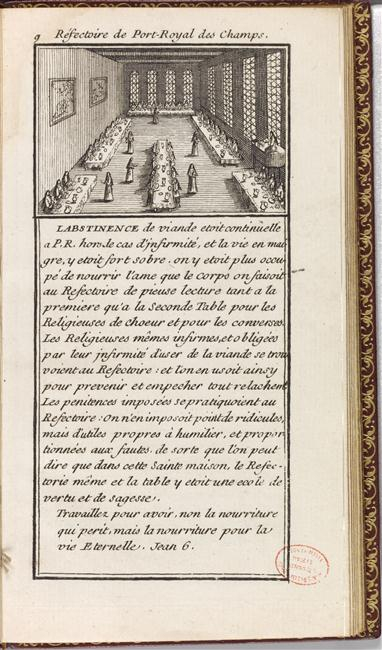 9 Réfectoire de Port-Royal des Champs.
LABSTINENCE de viande etoit continuelle
a P.R. hors de cas d'jnfirmité, et la vie en mai
gre, y etoit fort sobre. on y etoit plus occu
pé de nourrir l'ame que le corps on faisoit
au Refectoire de pieuse lecture tant a la
premiere qu'a la Seconde Table pour les
Religieuses de choeur et pour les converses.
Les Religieuses mêmes infirmes, et obligées
par leur jnfirmité d'user de la viande se trou
voient au Refectoire : et l'on en usoit ainsy
pour prevenir et empecher tout relachem.t
Les penitences imposées se pratiquoient au
Refectoire : On n'en imposoit point de ridicules,
mais d'utiles propres à humilier, et propor
tionnées aux fautes, de sorte que l'on peut
dire que dans cette Sainte maison, le Refec-
torie même et la table y etoit une ecole de
vertu et de sagesse.
Travaillez pour avoir, non la nourriture
qui perit, mais la nourriture pour la
vie Eternelle. Jean 6.